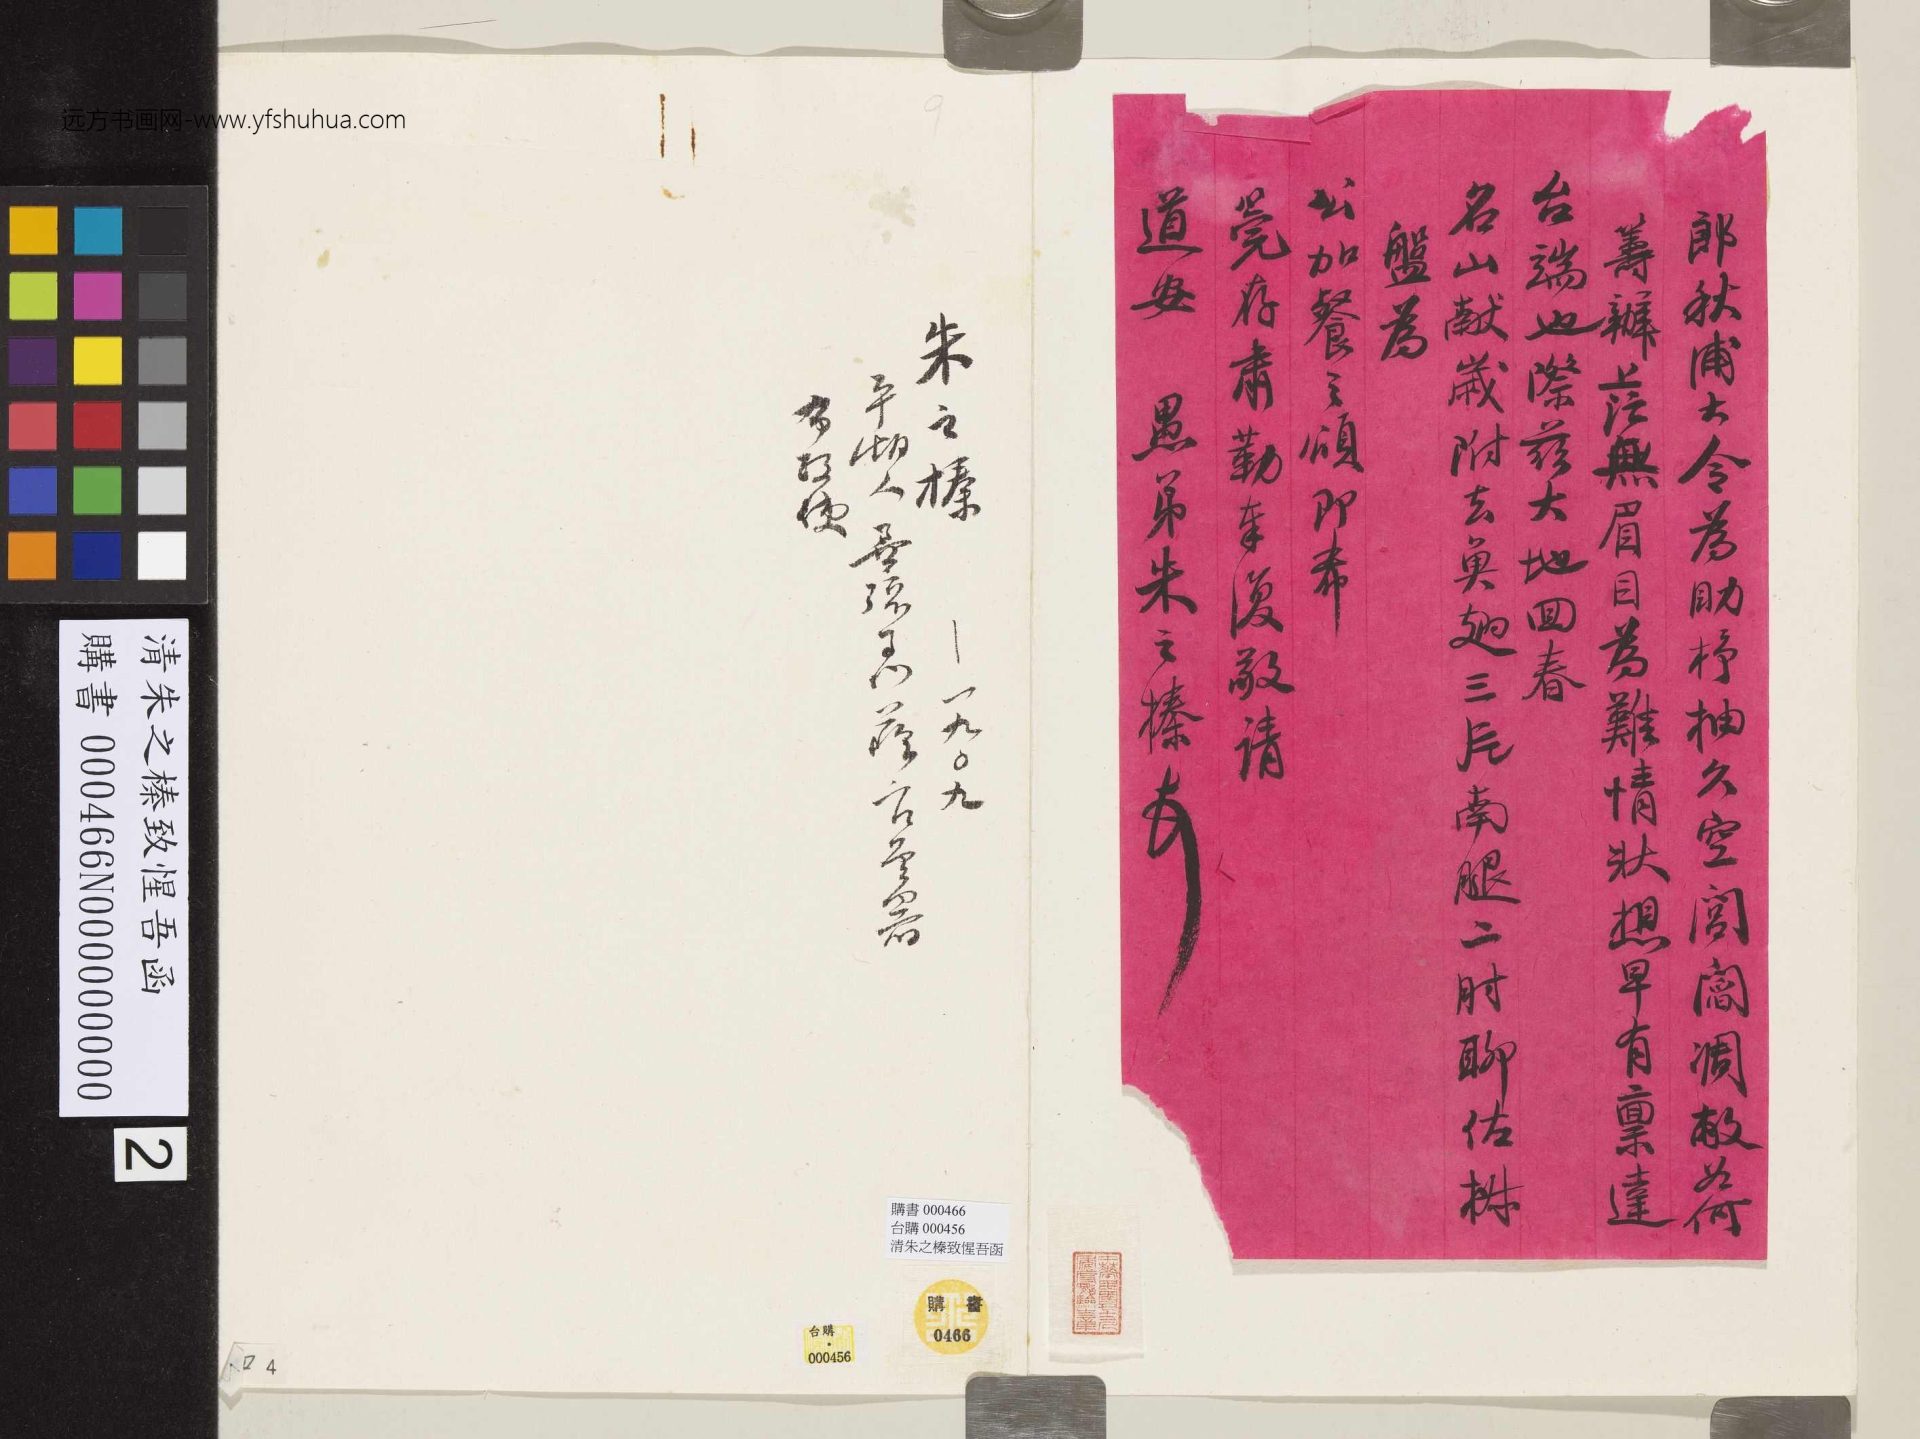 郎秋浦大令為助杼柚久空閭閻凋敝如何
籌辦茫無眉目為難情狀想早有稟達
台端也際茲大地回春
名山獻歲附去魚翅三片南腿二肘聊佐椒
盤為
公加餐之頌即希
莞存肅勒奉復敬請
道安　愚弟朱之榛頓
朱之榛　—一九〇九
平湖人
清朱之榛致惺吾函
購書 000466N000000000
2
購書 000466
台購 000456
清朱之榛致惺吾函
購書
0466
台購
000456
4
9
远方书画网-www.yfshuhua.com